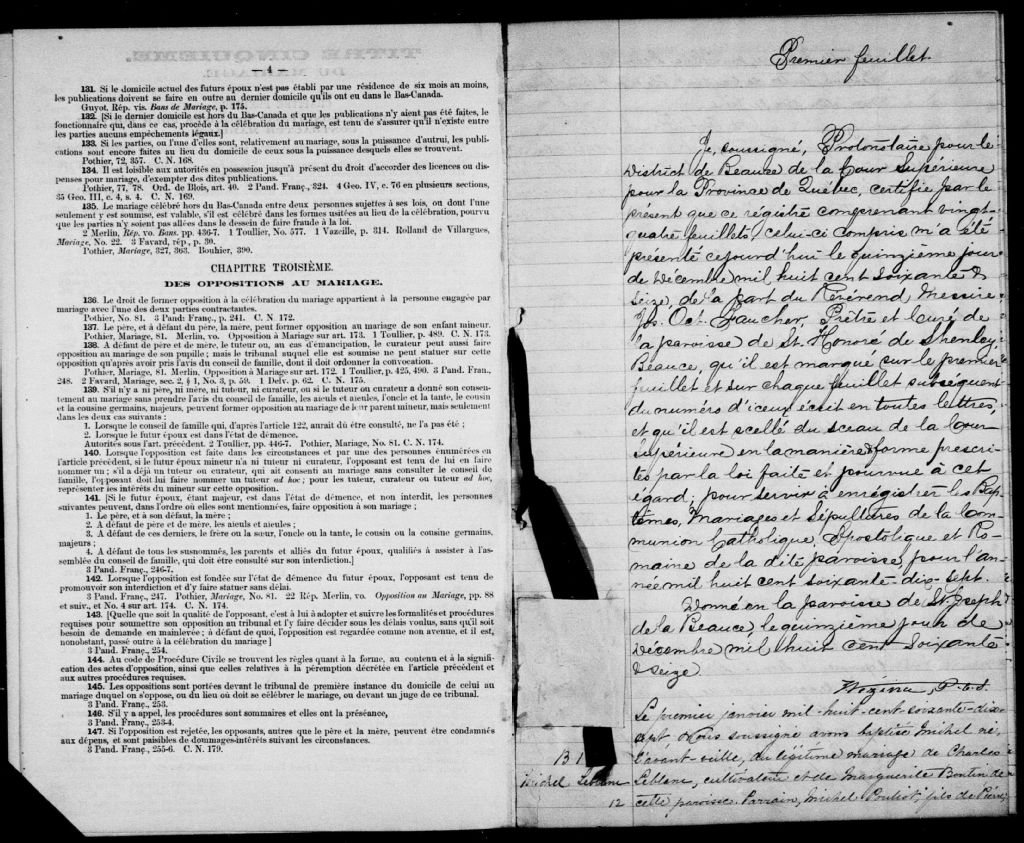 — 4 —
131. Si le domicile actuel des futurs époux n'est pas établi par une résidence de six mois au moins,
les publications doivent se faire en outre au dernier domicile qu'ils ont eu dans le Bas-Canada.
Guyot, Rép. vis. Bans de Mariage, p. 175.
132. [Si le dernier domicile est hors du Bas-Canada et que les publications n'y aient pas été faites, le
fonctionnaire qui, dans ce cas, procède à la célébration du mariage, est tenu de s'assurer qu'il n'existe entre
les parties aucuns empêchements légaux.]
133. Si les parties, ou l'une d'elles sont, relativement au mariage, sous la puissance d'autrui, les publi-
cations sont encore faites au lieu du domicile de ceux sous la puissance desquels elles se trouvent.
Pothier, 72, 357. C. N. 168.
134. Il est loisible aux autorités en possession jusqu'à présent du droit d'accorder des licences ou dis-
penses pour mariage, d'exempter des dites publications.
Pothier, 77, 78. Ord. de Blois, art. 40. 2 Pand. Franç., 324. 4 Geo. IV, c. 76 en plusieurs sections,
35 Geo. III, c. 4, s. 4. C. N. 169.
135. Le mariage célébré hors du Bas-Canada entre deux personnes sujettes à ses lois, ou dont l'une
seulement y est soumise, est valable, s'il est célébré dans les formes usitées au lieu de la célébration, pourvu
que les parties n'y soient pas allées dans le dessein de faire fraude à la loi.
2 Merlin, Rép. vo. Bans. pp. 436-7. 1 Toullier, No. 577. 1 Vazeille, p. 314. Rolland de Villargues,
Mariage, No. 22. 3 Favard, rép., p. 30.
Pothier, Mariage, 327, 363. Bouhier, 390.
CHAPITRE TROISIÈME.
DES OPPOSITIONS AU MARIAGE.
136. Le droit de former opposition à la célébration du mariage appartient à la personne engagée par
mariage avec l'une des deux parties contractantes.
Pothier, No. 81. 3 Pand. Franç., p. 241. C. N. 172.
137. Le père, et à défaut du père, la mère, peut former opposition au mariage de son enfant mineur.
Pothier, Mariage, 81. Merlin, vo. Opposition à Mariage sur art. 173. 1 Toullier, p. 489. C. N. 173.
138. A défaut de père et de mère, le tuteur ou, au cas d'émancipation, le curateur peut aussi faire
opposition au mariage de son pupille ; mais le tribunal auquel elle est soumise ne peut statuer sur cette
opposition qu'après avoir pris l'avis du conseil de famille, dont il doit ordonner la convocation.
Pothier, Mariage, 81. Merlin, Opposition à Mariage sur art. 172. 1 Toullier, p. 425, 490. 3 Pand. Fran.,
248. 2 Favard, Mariage, sec. 2, § 1, No. 3, p. 59. 1 Delv. p. 62. C. N. 175.
139. S'il n'y a ni père, ni mère, ni tuteur, ni curateur, ou si le tuteur ou curateur a donné son consen-
tement au mariage sans prendre l'avis du conseil de famille, les aieuls et aieules, l'oncle et la tante, le cousin
et la cousine germains, majeurs, peuvent former opposition au mariage de leur parent mineur, mais seulement
dans les deux cas suivants :
1. Lorsque le conseil de famille qui, d'après l'article 122, aurait dû être consulté, ne l'a pas été ;
2. Lorsque le futur époux est dans l'état de démence.
Autorités sous l'art. précédent. 2 Toullier, pp. 446-7. Pothier, Mariage, No. 81. C. N. 174.
140. Lorsque l'opposition est faite dans les circonstances et par une des personnes énumérées en
l'article précédent, si le futur époux mineur n'a ni tuteur ni curateur, l'opposant est tenu de lui en faire
nommer un ; s'il a déjà un tuteur ou curateur, qui ait consenti au mariage sans consulter le conseil de
famille, l'opposant doit lui faire nommer un tuteur ad hoc ; pour les tuteur, curateur ou tuteur ad hoc,
représenter les intérêts du mineur sur cette opposition.
141. [Si le futur époux, étant majeur, est dans l'état de démence, et non interdit, les personnes
suivantes peuvent, dans l'ordre où elles sont mentionnées, faire opposition à son mariage ;
1. Le père, et à son défaut, la mère ;
2. A défaut de père et de mère, les aieuls et aieules ;
3. A défaut de ces derniers, le frère ou la sœur, l'oncle ou la tante, le cousin ou la cousine germains,
majeurs ;
4. A défaut de tous les susnommés, les parents et alliés du futur époux, qualifiés à assister à l'as-
semblée du conseil de famille, qui doit être consulté sur son interdiction.]
3 Pand. Franç., 246-7.
142. Lorsque l'opposition est fondée sur l'état de démence du futur époux, l'opposant est tenu de
promouvoir son interdiction et d'y faire statuer sans délai.
3 Pand. Franç., 247. Pothier, Mariage, No. 81. 22 Rép. Merlin, vo. Opposition au Mariage, pp. 88
et suiv., et No. 4 sur art. 174. C. N. 174.
143. [Quelle que soit la qualité de l'opposant, c'est à lui à adopter et suivre les formalités et procédures
requises pour soumettre son opposition au tribunal et l'y faire décider sous les délais voulus, sans qu'il soit
besoin de demande en mainlevée ; à défaut de quoi, l'opposition est regardée comme non avenue, et il est,
nonobstant, passé outre à la célébration du mariage]
3 Pand. Franç., 254.
144. Au code de Procédure Civile se trouvent les règles quant à la forme, au contenu et à la signifi-
cation des actes d'opposition, ainsi que celles relatives à la péremption décrétée en l'article précédent et
aux autres procédures requises.
145. Les oppositions sont portées devant le tribunal de première instance du domicile de celui au
mariage duquel on s'oppose, ou du lieu où doit se célébrer le mariage, ou devant un juge de ce tribunal.
3 Pand. Franç., 253.
146. S'il y a appel, les procédures sont sommaires et elles ont la préséance,
3 Pand. Franç., 253-4.
147. Si l'opposition est rejetée, les opposants, autres que le père et la mère, peuvent être condamnés
aux dépens, et sont passibles de dommages-intérêts suivant les circonstances.
3 Pand. Franç., 255-6. C. N. 179.
Premier feuillet.
Je, soussigné, Protonotaire pour le
District de Beauce de la Cour Supérieure
pour la Province de Québec, certifie par le
présent que ce régistre comprenant vingt-
quatre feuillets, celui-ci compris m'a été
présenté cejourd'hui le quinzième jour
de Décembre mil huit cent soixante &
seize, de la part du Révérend Messire
Js. Oct. Faucher, Prêtre et Curé de
la paroisse de St. Honoré de Shenley
Beauce, qu'il est marqué sur le premier
feuillet et sur chaque feuillet subséquent
du numéro d'iceux écrit en toutes lettres,
et qu'il est scellé du sceau de la Cour
Supérieure en la manière & forme prescri-
tes par la loi faite et pourvue à cet
égard; pour servir à enrégistrer les Bap-
têmes, Mariages et Sépultures de la Com-
munion Catholique, Apostolique et Ro-
maine de la dite paroisse, pour l'an-
née mil huit cent soixante dix-sept.
Donné en la paroisse de St. Joseph
de la Beauce, le quinzième jour de
Décembre mil huit cent soixante
& seize.
P.C.S.
Le premier janvier mil-huit-cent-soixante-dix-
sept, Nous soussigné avons baptisé Michel né,
l'avant-veille, du légitime mariage de Charles
Leblanc, cultivateur et de Marguerite Boutin de
cette paroisse. Parrain, Michel Pouliot, fils de Pierre
B 1
Michel Leblanc
12